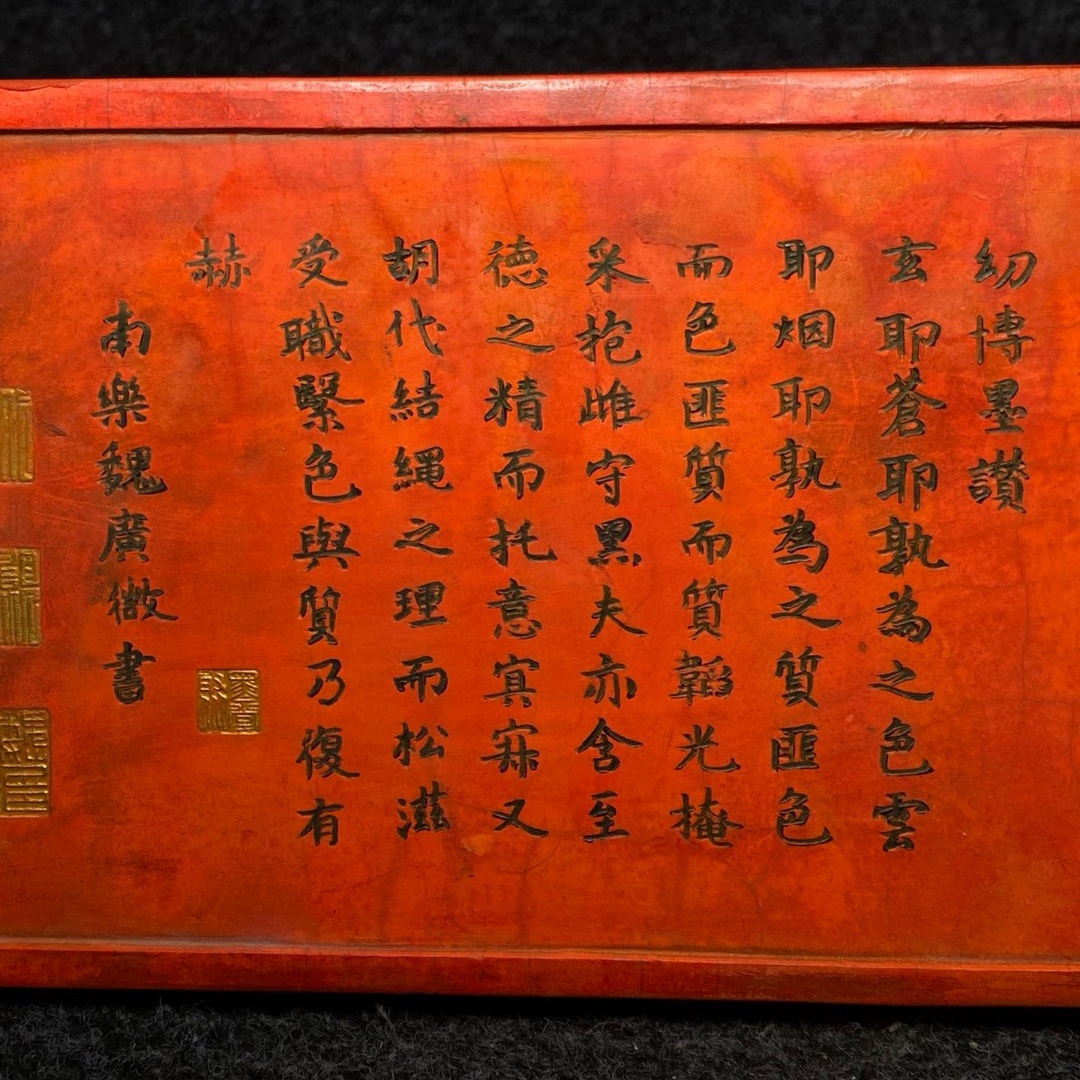 幼博墨讚
玄耶蒼耶孰為之色雲
耶烟耶孰為之質匪色
而色匪質而質韜光掩
采抱雌守黑夫亦含至
德之精而托意寘寐又
胡代結繩之理而松滋
受職繄色與質乃復有
赫
南樂魏廣微書